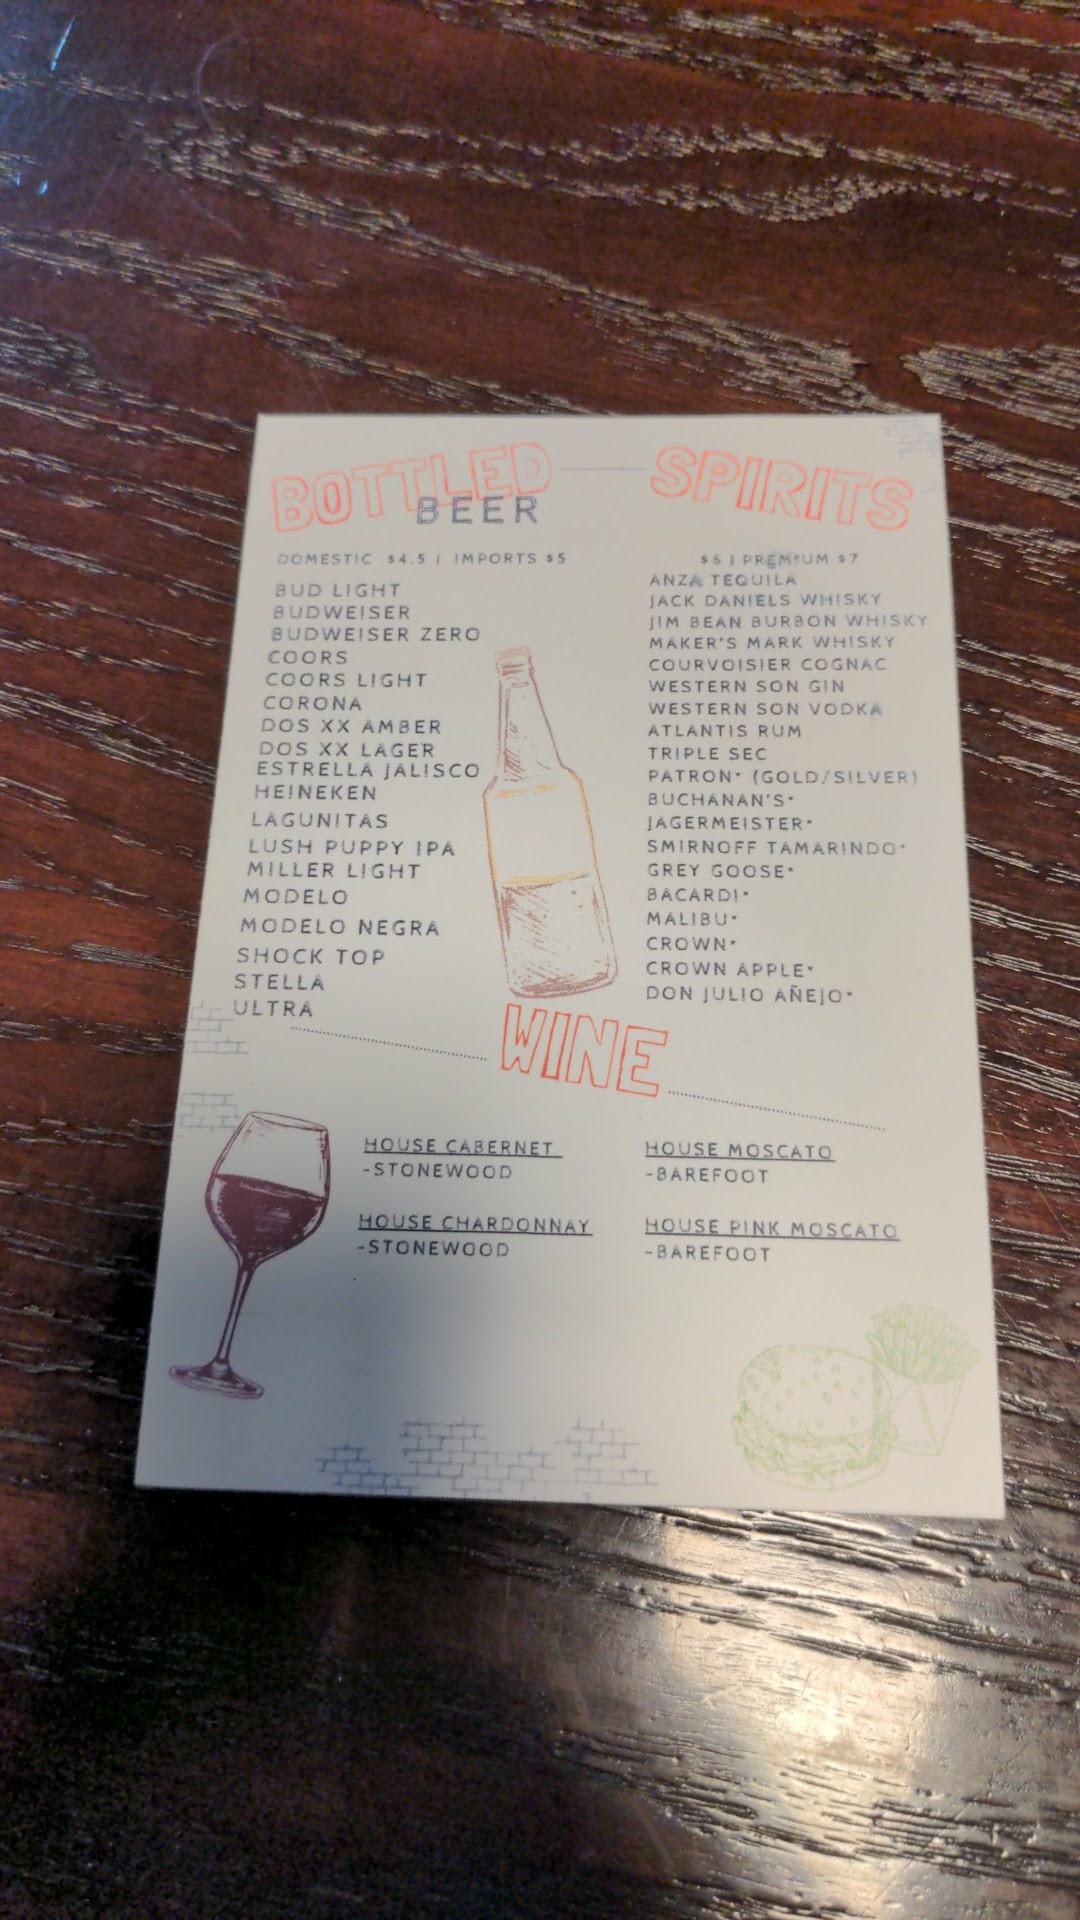 BOTTLED
BEER
DOMESTIC $4.5 | IMPORTS $5
BUD LIGHT
BUDWEISER
BUDWEISER ZERO
COORS
COORS LIGHT
CORONA
DOS XX AMBER
DOS XX LAGER
ESTRELLA JALISCO
HEINEKEN
LAGUNITAS
LUSH PUPPY IPA
MILLER LIGHT
MODELO
MODELO NEGRA
SHOCK TOP
STELLA
ULTRA
SPIRITS
$6 | PREMIUM $7
ANZA TEQUILA
JACK DANIELS WHISKY
JIM BEAN BURBON WHISKY
MAKER'S MARK WHISKY
COURVOISIER COGNAC
WESTERN SON GIN
WESTERN SON VODKA
ATLANTIS RUM
TRIPLE SEC
PATRON* (GOLD/SILVER)
BUCHANAN'S*
JAGERMEISTER*
SMIRNOFF TAMARINDO*
GREY GOOSE*
BACARDI*
MALIBU*
CROWN*
CROWN APPLE*
DON JULIO AÑEJO*
WINE
HOUSE CABERNET
-STONEWOOD
HOUSE CHARDONNAY
-STONEWOOD
HOUSE MOSCATO
-BAREFOOT
HOUSE PINK MOSCATO
-BAREFOOT